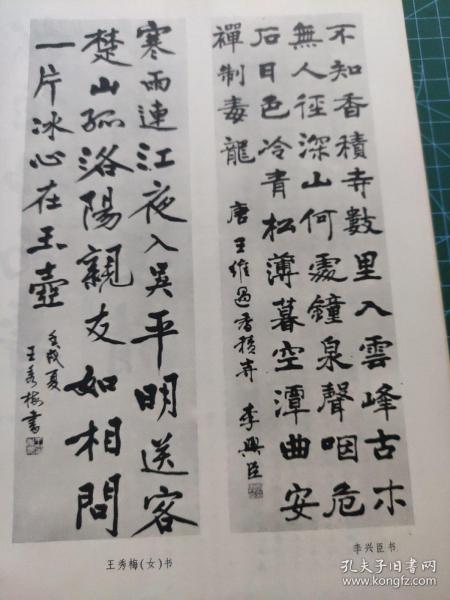 不知香積寺數里入雲峰古木
無人徑深山何處鐘泉聲咽危
石日色冷青松薄暮空潭曲安
禪制毒龍 唐王維過香積寺 李興臣
李兴臣书
寒雨連江夜入吳平明送客
楚山孤洛陽親友如相問
一片冰心在玉壺
壬戌夏
王秀梅書
王秀梅(女)书
孔夫子旧书网